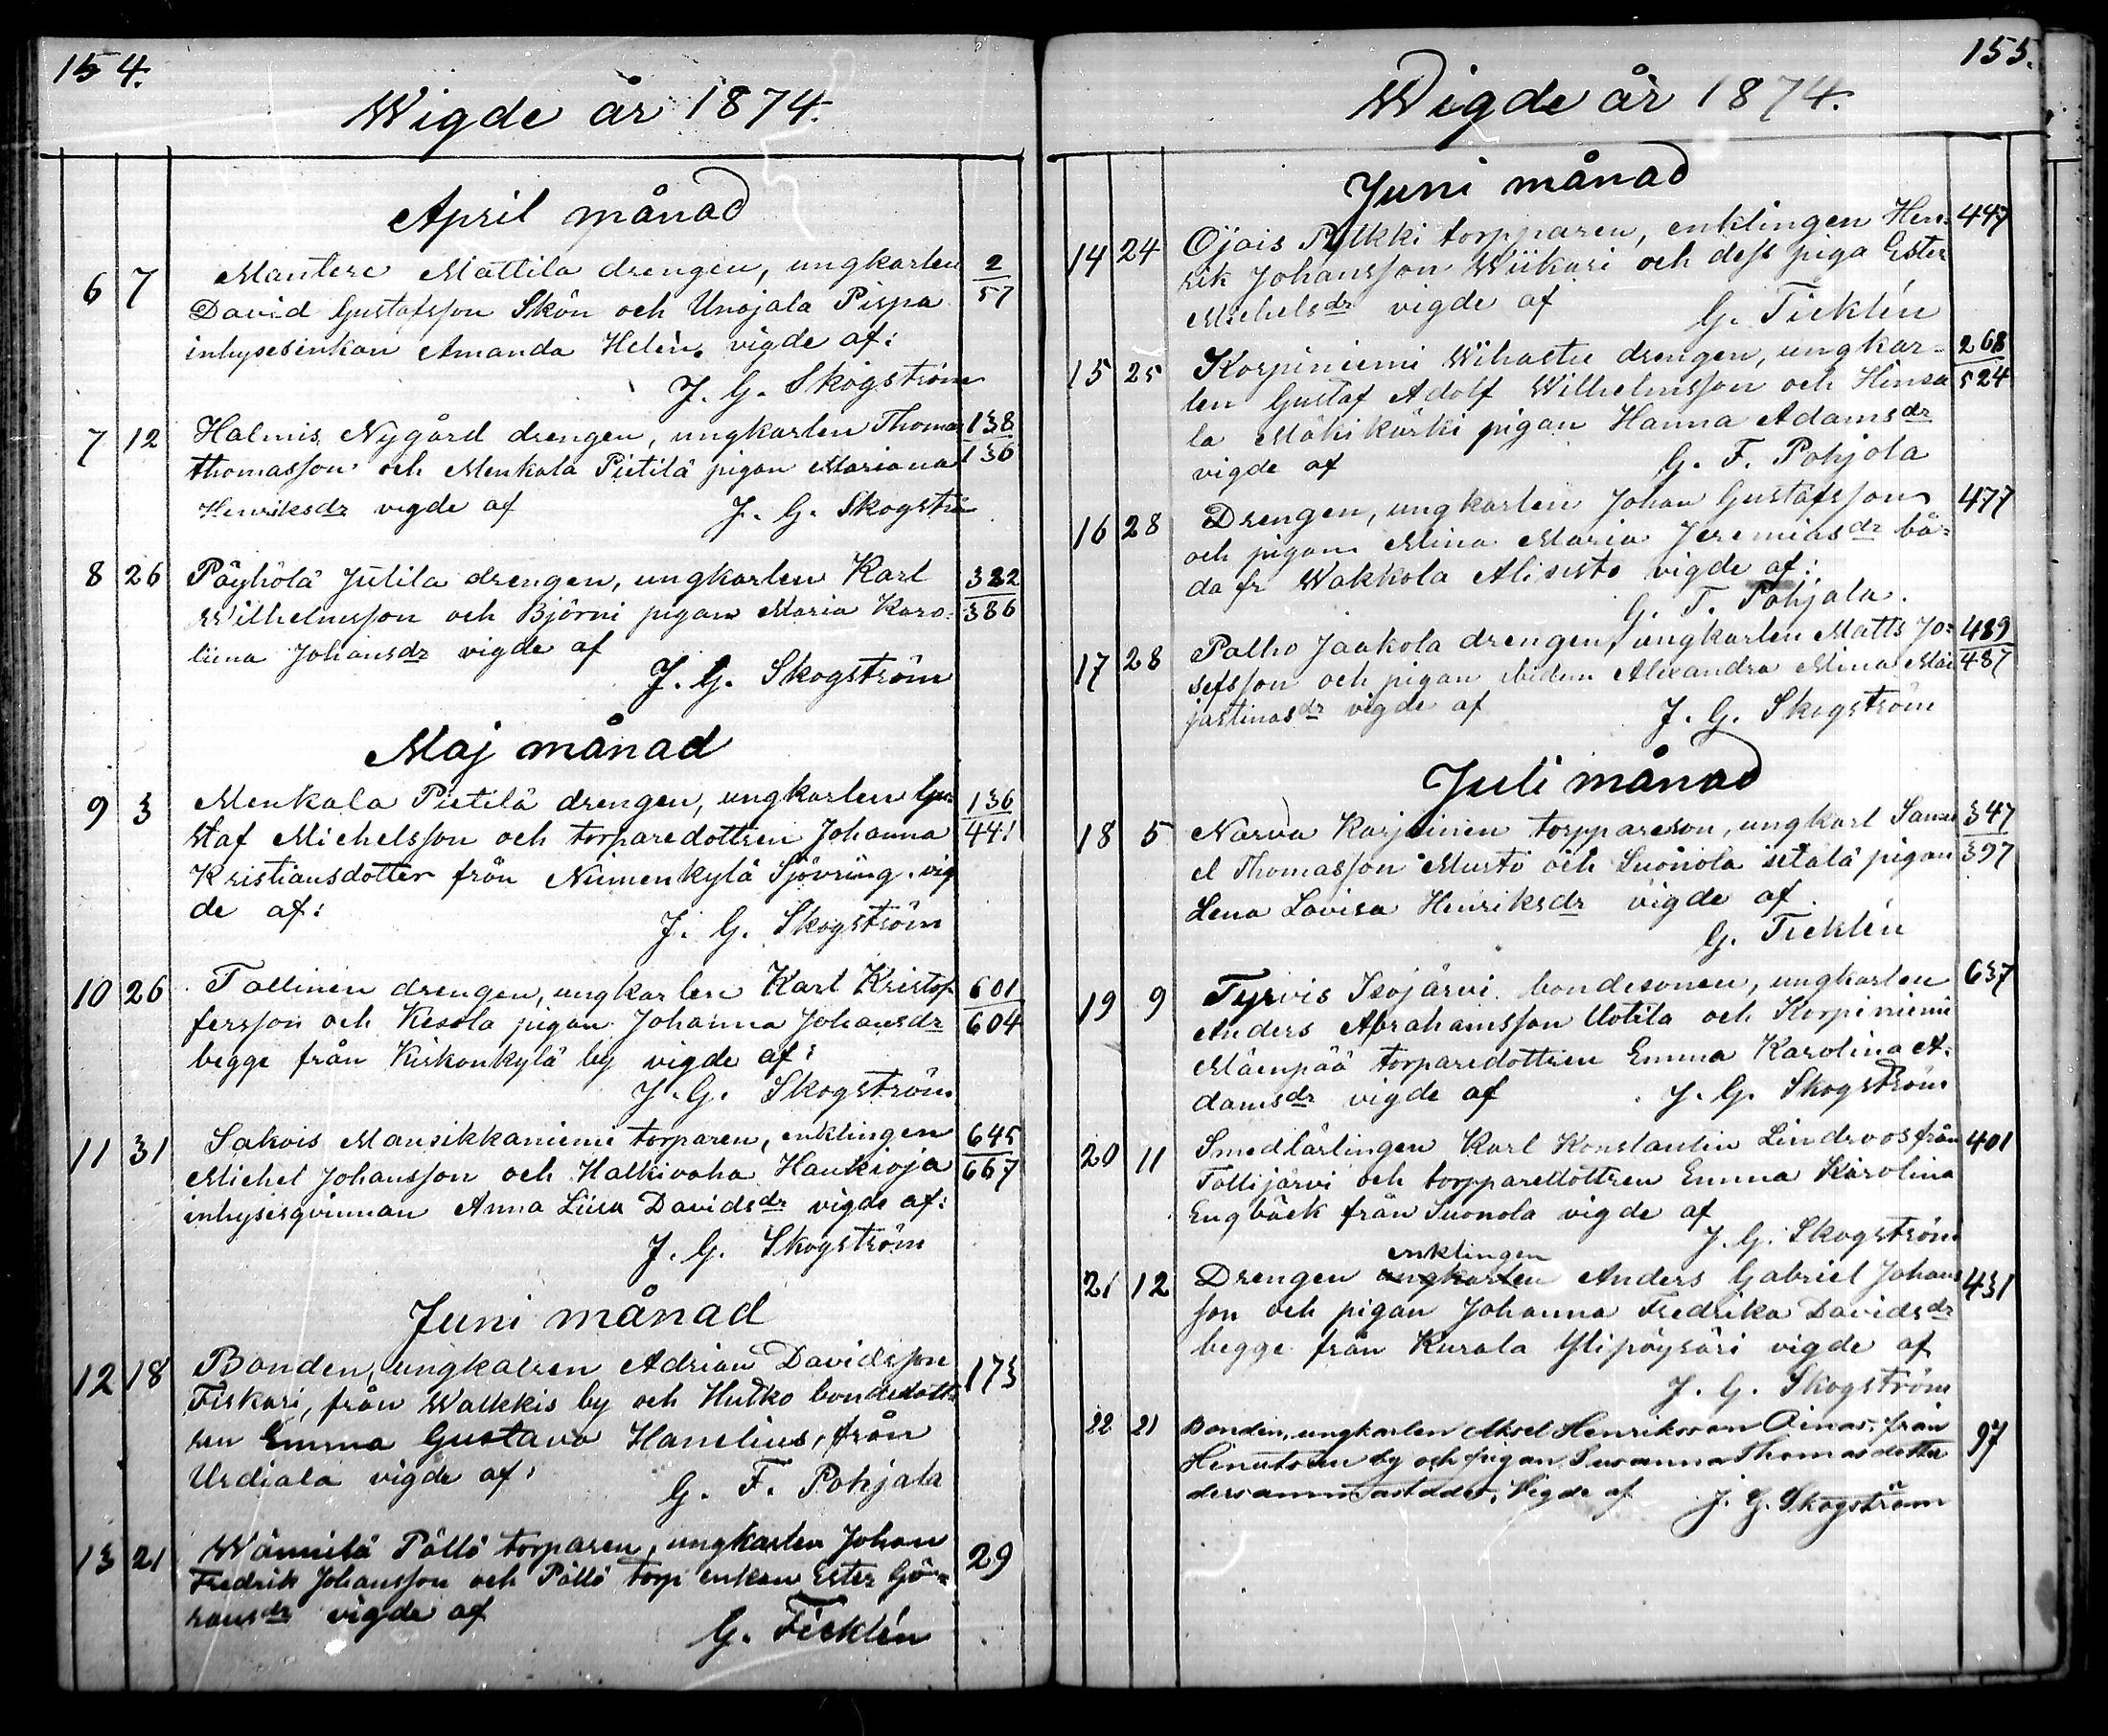 154.
Wigde år 1874.
April månad
6 7 Mantere Mattila drengen, ungkarlen 2/57
David Gustafsson Skön och Unojala Pispa
inhysesinkan Amanda Helén. vigde af:
J. G. Skogström
7 12 Halmis Nygård drengen, ungkarlen Thomas 138/136
Thomasson och Menkala Pietilä pigan Mariana
Henriksdr vigde af J. G. Skogströ
8 26 Päyhölä Jutila drengen, ungkarlen Karl 382/386
Wilhelmsson och Björni pigan Maria Karo-
liina Johansdr vigde af
J. G. Skogström
Maj månad
9 3 Menkala Pietilä drengen, ungkarlen Gu- 136/441
staf Michelsson och torparedottren Johanna
Kristiansdotter från Niimenkylä Sjövring. vig
de af:
J. G. Skogström
10 26 Tallinen drengen, ungkarlen Karl Kristof- 601/604
fersson och Kesola pigan Johanna Johansdr
begge från Kirkonkylä by vigde af:
J. G. Skogström
11 31 Sakois Mansikkaniemi torparen, enklingen 645/667
Michel Johansson och Halkivaha Haukioja
inhysesqvinnan Anna Liisa Davidsdr vigde af:
J. G. Skogström
Juni månad
12 18 Bonden, ungkalren Adrian Davidsson 173
Fiskari, från Walkkis by och Hutko bondedott-
ren Emma Gustava Hanelius, från
Urdiala vigde af:
G. F. Pohjala
13 21 Wännilä Pällö torparen, ungkarlen Johan 29
Fredrik Johansson och Pällö torp enkan Ester Gö-
ransdr vigde af
G. Ticklén
155.
Wigde år 1874.
Juni månad
14 24 Ojais Pulkki torpparen, enklingen Hen- 447
rik Johansson Wiikari och dess piga Ester
Michelsdr vigde af
G. Ticklén
15 25 Korpiniemi Wihastu drengen, ungkar- 268/524
len Gustaf Adolf Wilhelmsson och Hinsa
la Mäkikärki pigan Hanna Adamsdr
vigde af G. F. Pohjola
16 28 Drengen, ungkarlen Johan Gustafsson 477
och pigan Mina Maria Jeremiasdr bå-
da fr Wakkola Alisisto vigde af:
G. F. Pohjala.
17 28 Palho Jaakola drengen, ungkarlen Matts Jo- 489/487
sefsson och pigan ibidem Alexandra Mina Mai
jastinasdr vigde af J. G. Skogström
Juli månad
18 5 Narva Karjainen torppareson, ungkarl Samu 347/397
el Thomasson Musto och Suonola setälä pigan
Lena Lovisa Henriksdr vigde af.
G. Ticklén
19 9 Tyrvis Isojärvi bondesonen, ungkarlen 637
Anders Abrahamsson Uotila och Korpiniemi
Mäenpää torparedottren Emma Karolina A-
damsdr vigde af J. G. Skogström
20 11 Smedlärlingen Karl Konstantin Lindroos från 401
Tallijärvi och torpparedottren Emma Karolina
Engbäck från Suonola vigde af
J. G. Skogström
enklingen
21 12 Drengen ungkarlen Anders Gabriel Johans 431
son och pigan Johanna Fredrika Davidsdr
begge från Kurala Ylipöysäri vigde af
J. G. Skogström
22 21 Bonden, ungkarlen Aksel Henriksson Oinas, från 97
by och pigan Susanna Thomasdotter
dersammastädes. Vigde af J. G. Skogström